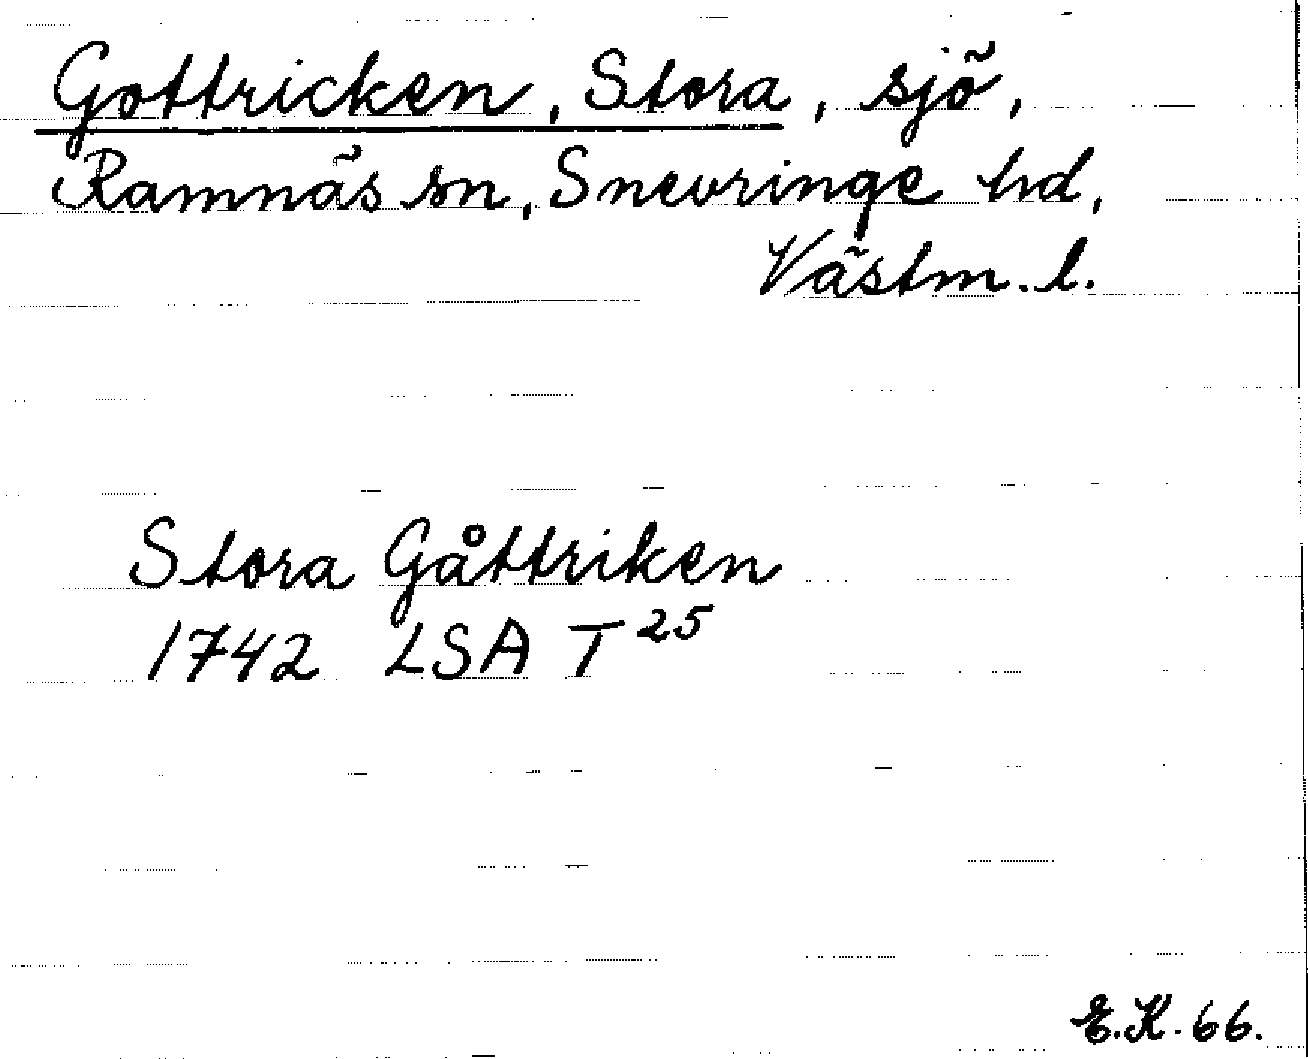 Gottricken, Stora, sjö,
Ramnäs sn, Snevringe hd,
Västm. l.
Stora Gåttriken
1742 LSA T 25
E.K. 66.